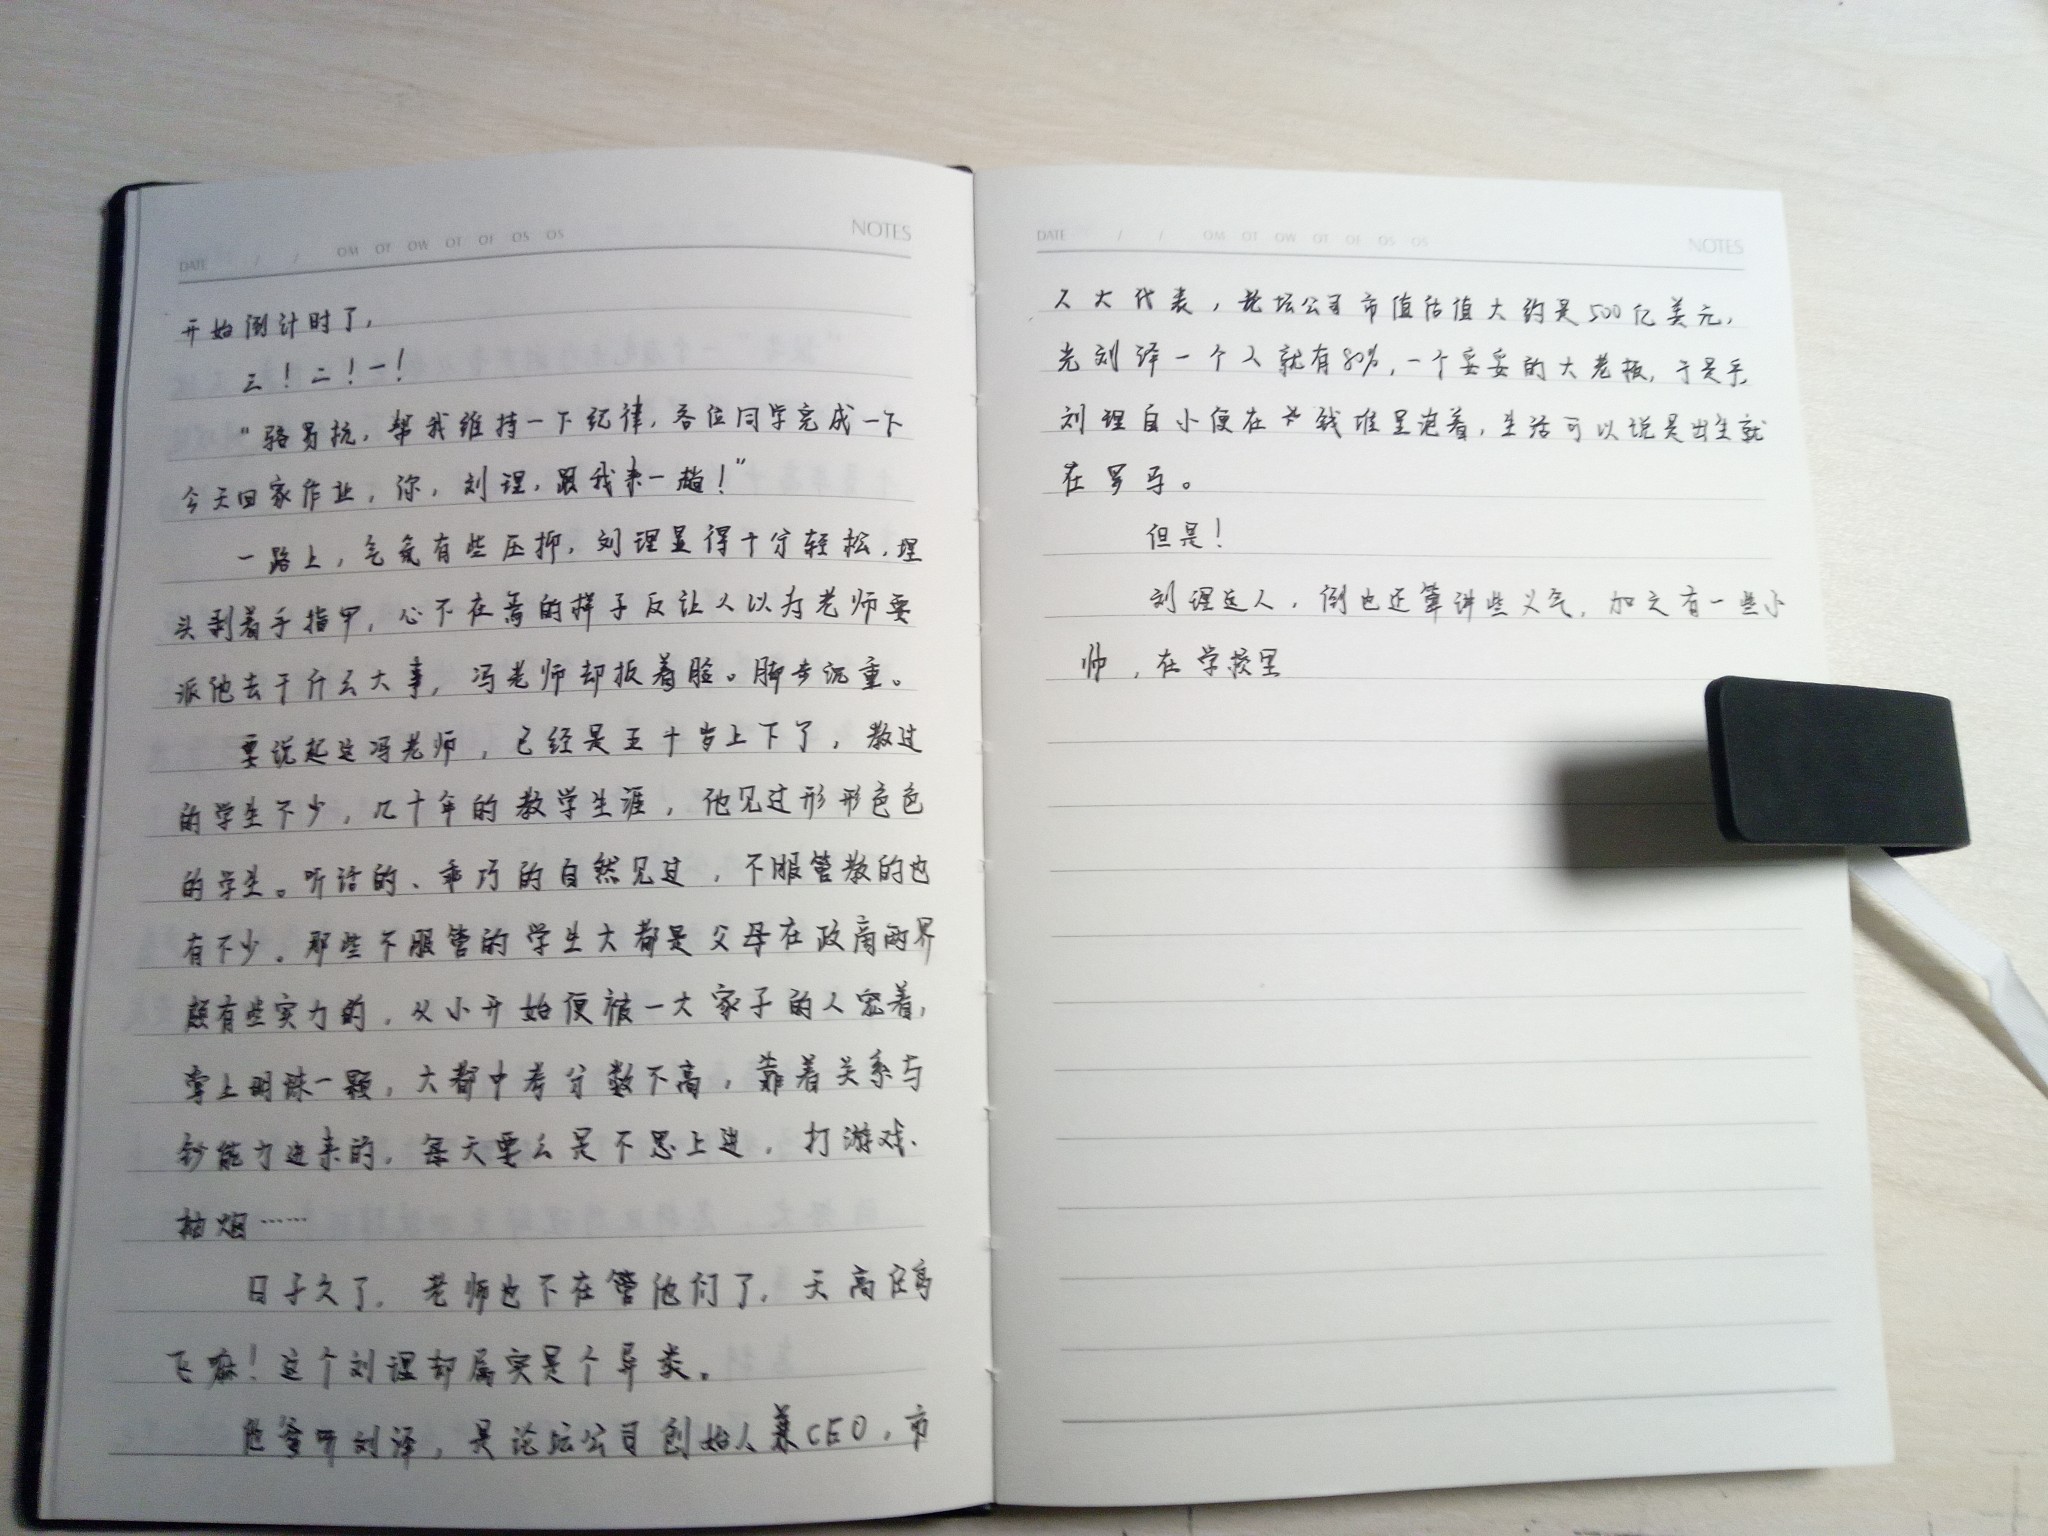 DATE / / OM OT OW OT OF OS OS NOTES
开始倒计时了,
三！二！一！
“骆易抗,帮我维持一下纪律,各位同学完成一下
今天回家作业,你,刘理,跟我来一趟！”
一路上,气氛有些压抑,刘理显得十分轻松,埋
头剥着手指甲,心不在焉的样子反让人以为老师要
派他去干什么大事,冯老师却扳着脸。脚步沉重。
要说起这冯老师,已经是五十岁上下了,教过
的学生不少,几十年的教学生涯,他见过形形色色
的学生。听话的、乖巧的自然见过,不服管教的也
有不少。那些不服管的学生大都是父母在政商两界
颇有些实力的,从小开始便被一大家子的人宠着,
掌上明珠一颗,大都中考分数不高,靠着关系与
钞能力进来的,每天要么是不思上进,打游戏、
抽烟……
日子久了,老师也不在管他们了,天高任鸟
飞嘛！这个刘理却属实是个异类。
他爹叫刘泽,是论坛公司创始人兼CEO,市
DATE / / OM OT OW OT OF OS OS NOTES
人大代表,论坛公司市值估值大约是500亿美元,
光刘泽一个人就有80%,一个妥妥的大老板,于是乎,
刘理自小便在钱堆里泡着,生活可以说是出生就
在罗马。
但是！
刘理这人,倒也还算讲些义气,加之有一些小
帅,在学校里